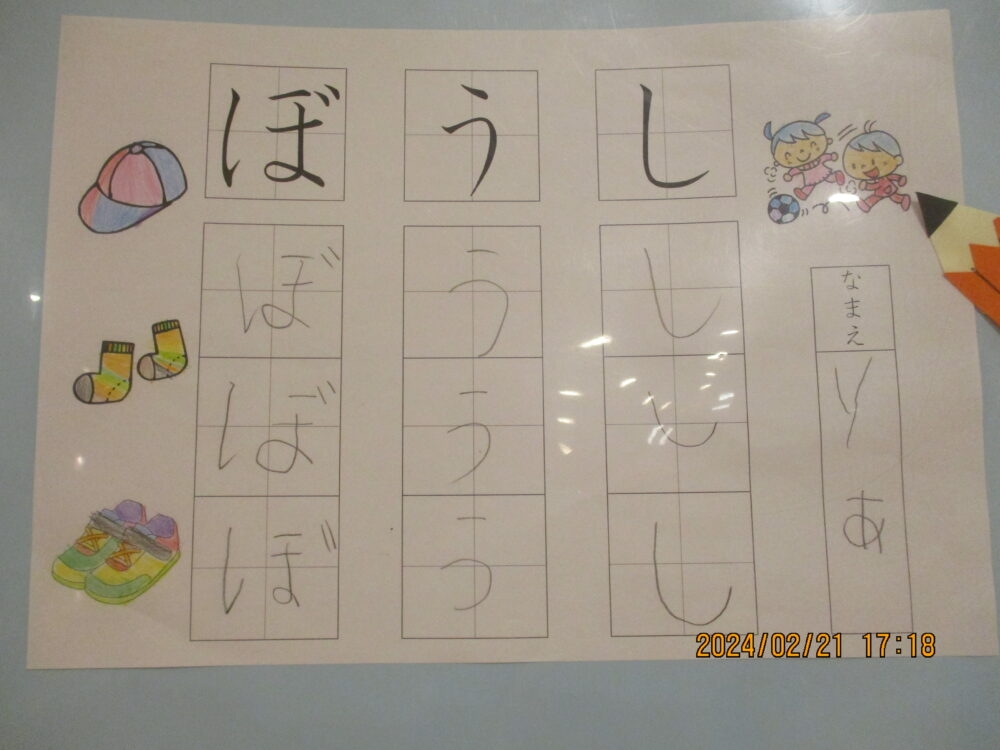 ぼうし
ぼうし
ぼうし
ぼうし
なまえ
りあ
2024/02/21 17:18